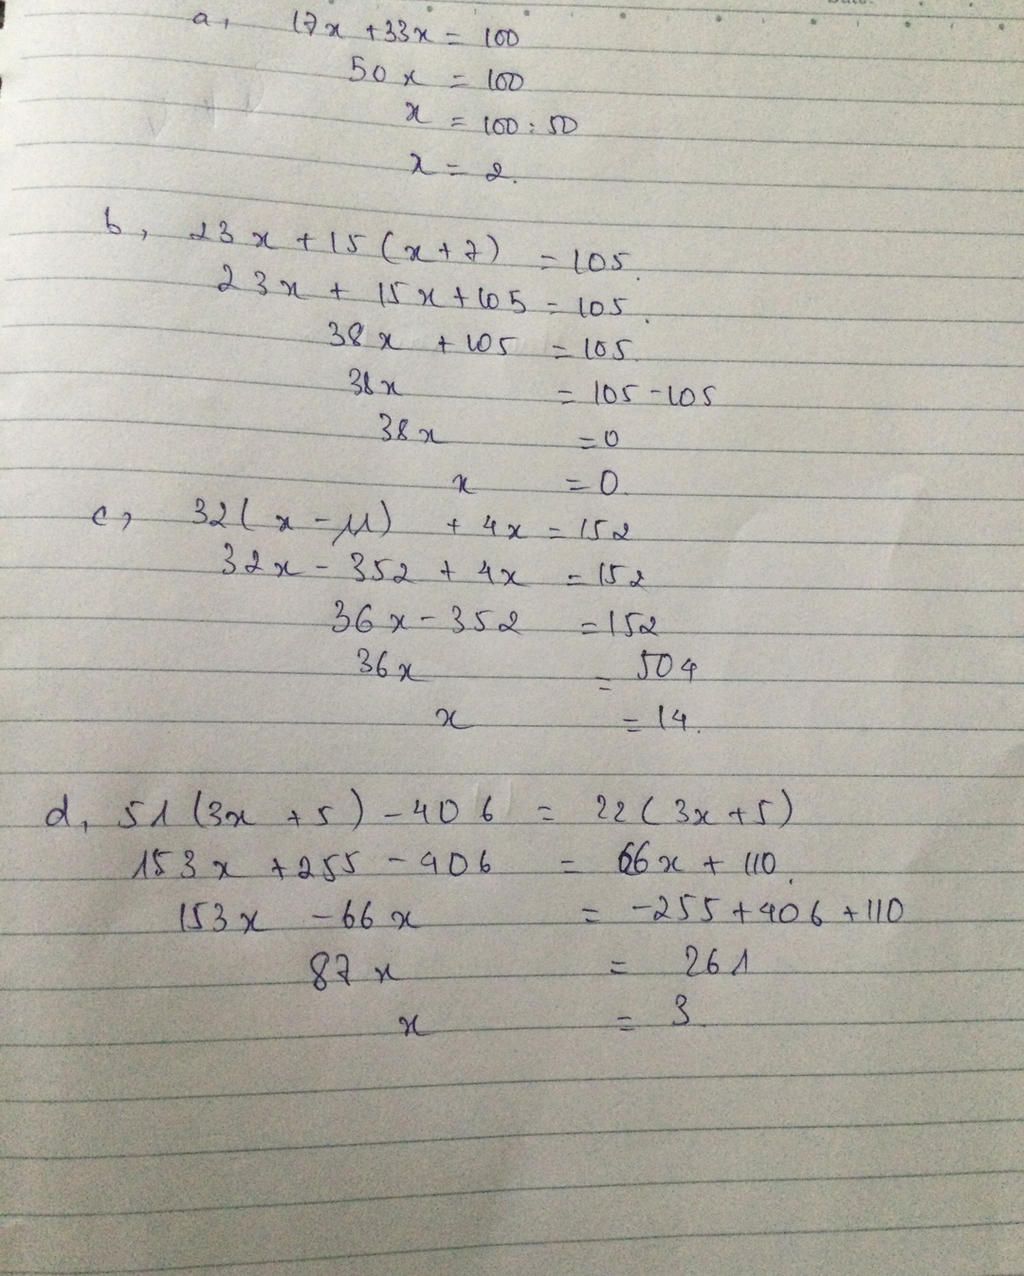 a, 17x + 33x = 100
50x = 100
x = 100 : 50
x = 2.
b, 23x + 15(x + 7) = 105.
23x + 15x + 105 = 105.
38x + 105 = 105.
38x = 105 - 105
38x = 0
x = 0.
c, 32(x - 11) + 4x = 152
32x - 352 + 4x = 152
36x - 352 = 152
36x = 504
x = 14.
d, 51(3x + 5) - 406 = 22(3x + 5)
153x + 255 - 406 = 66x + 110.
153x - 66x = -255 + 406 + 110
87x = 261
x = 3